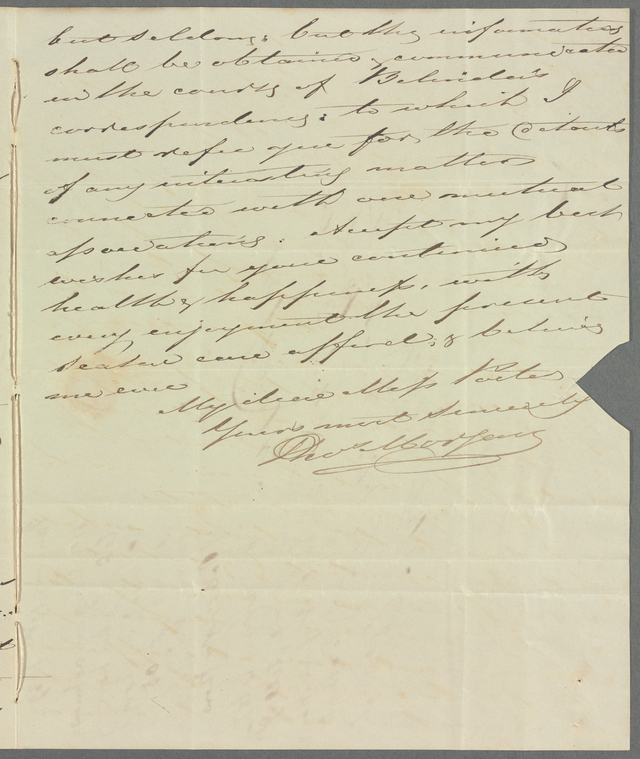 but seldom; but the information
shall be obtained & communicated
in the course of Belinda's
correspondence; to which I
must refer you for the details
of any interesting matter
connected with our mutual
associations. Accept my best
wishes for your continued
health & happiness, with
every enjoyment the present
season can afford, & believe
me ever
My dear Miss Porter
Yours most sincerely
Thos. Morgan